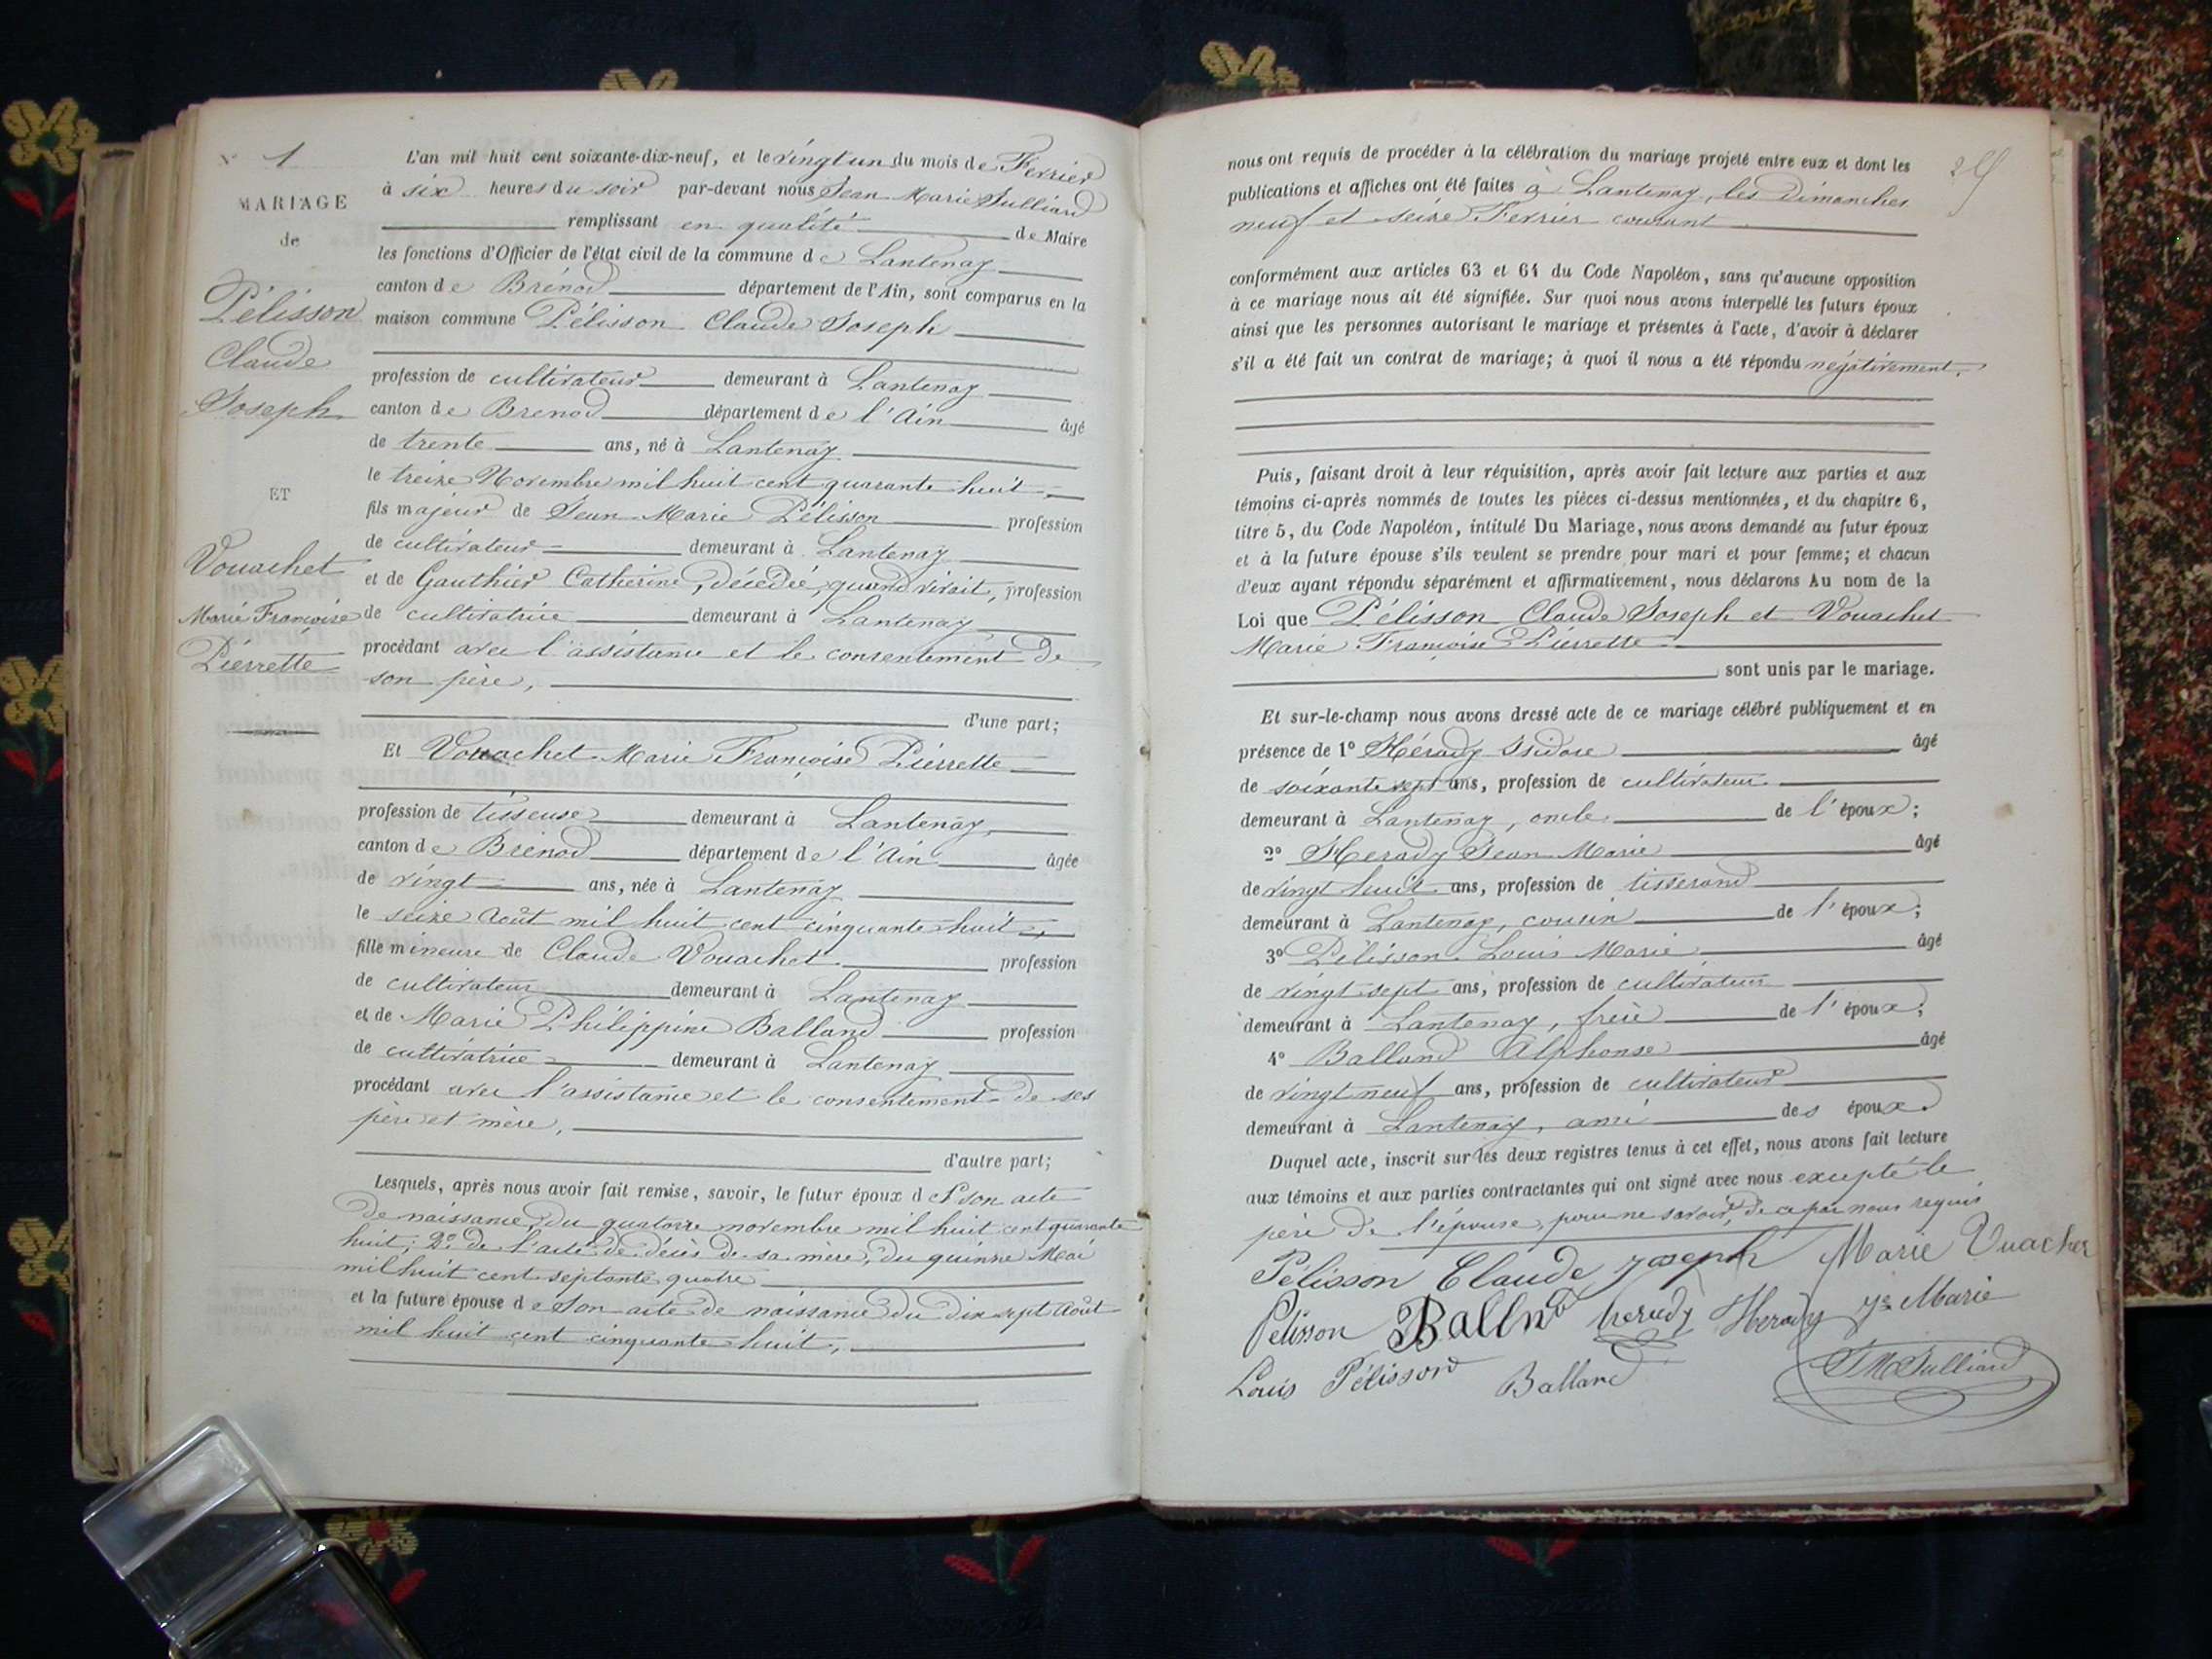 N° 1
MARIAGE
de
Pélisson
Claude
Joseph
ET
Vouachet
Marie Françoise
Pierrette
L'an mil huit cent soixante-dix-neuf, et le vingt un du mois de Février
à six heures du soir par-devant nous Jean Marie Julliard
remplissant en qualité de Maire
les fonctions d'Officier de l'état civil de la commune de Lantenay
canton de Brénod département de l'Ain, sont comparus en la
maison commune Pélisson Claude Joseph
profession de cultivateur demeurant à Lantenay
canton de Brenod département de l'Ain âgé
de trente ans, né à Lantenay
le treize Novembre mil huit cent quarante huit,
fils majeur de Jean Marie Pélisson profession
de cultivateur demeurant à Lantenay
et de Gauthier Catherine, décédée, quand vivait, profession
de cultivatrice demeurant à Lantenay
procédant avec l'assistance et le consentement de
son père,
d'une part;
Et Vouachet Marie Françoise Pierrette
profession de tisseuse demeurant à Lantenay
canton de Brénod département de l'Ain âgée
de vingt ans, née à Lantenay
le seize Août mil huit cent cinquante huit,
fille mineure de Claude Vouachet profession
de cultivateur demeurant à Lantenay
et de Marie Philippine Balland profession
de cultivatrice demeurant à Lantenay
procédant avec l'assistance et le consentement de ses
père et mère,
d'autre part;
Lesquels, après nous avoir fait remise, savoir, le futur époux de 1° son acte
de naissance, du quatorze novembre mil huit cent quarante
huit; 2° de l'acte de décès de sa mère, du quinze Mai
mil huit cent septante quatre
et la future épouse de son acte de naissance du dix sept Août
mil huit cent cinquante huit,
nous ont requis de procéder à la célébration du mariage projeté entre eux et dont les
publications et affiches ont été faites à Lantenay, les dimanches
neuf et seize Février courant
conformément aux articles 63 et 64 du Code Napoléon, sans qu'aucune opposition
à ce mariage nous ait été signifiée. Sur quoi nous avons interpellé les futurs époux
ainsi que les personnes autorisant le mariage et présentes à l'acte, d'avoir à déclarer
s'il a été fait un contrat de mariage; à quoi il nous a été répondu négativement.
Puis, faisant droit à leur réquisition, après avoir fait lecture aux parties et aux
témoins ci-après nommés de toutes les pièces ci-dessus mentionnées, et du chapitre 6,
titre 5, du Code Napoléon, intitulé Du Mariage, nous avons demandé au futur époux
et à la future épouse s'ils veulent se prendre pour mari et pour femme; et chacun
d'eux ayant répondu séparément et affirmativement, nous déclarons Au nom de la
Loi que Pélisson Claude Joseph et Vouachet
Marie Françoise Pierrette
sont unis par le mariage.
Et sur-le-champ nous avons dressé acte de ce mariage célébré publiquement et en
présence de 1° Hérady Isidore âgé
de soixante sept ans, profession de cultivateur
demeurant à Lantenay, oncle de l'époux;
2° Herady Jean Marie âgé
de vingt huit ans, profession de tisserand
demeurant à Lantenay, cousin de l'époux;
3° Pélisson Louis Marie âgé
de vingt sept ans, profession de cultivateur
demeurant à Lantenay, frère de l'époux;
4° Balland Alphonse âgé
de vingt neuf ans, profession de cultivateur
demeurant à Lantenay, ami des époux.
Duquel acte, inscrit sur les deux registres tenus à cet effet, nous avons fait lecture
aux témoins et aux parties contractantes qui ont signé avec nous excepté le
père de l'épouse, pour ne savoir, de ce par nous requis
Pélisson Claude joseph Marie Vuachet
Pelisson Ballnd herady Herady Jn Marie
Louis Pélisson Balland JM Julliard